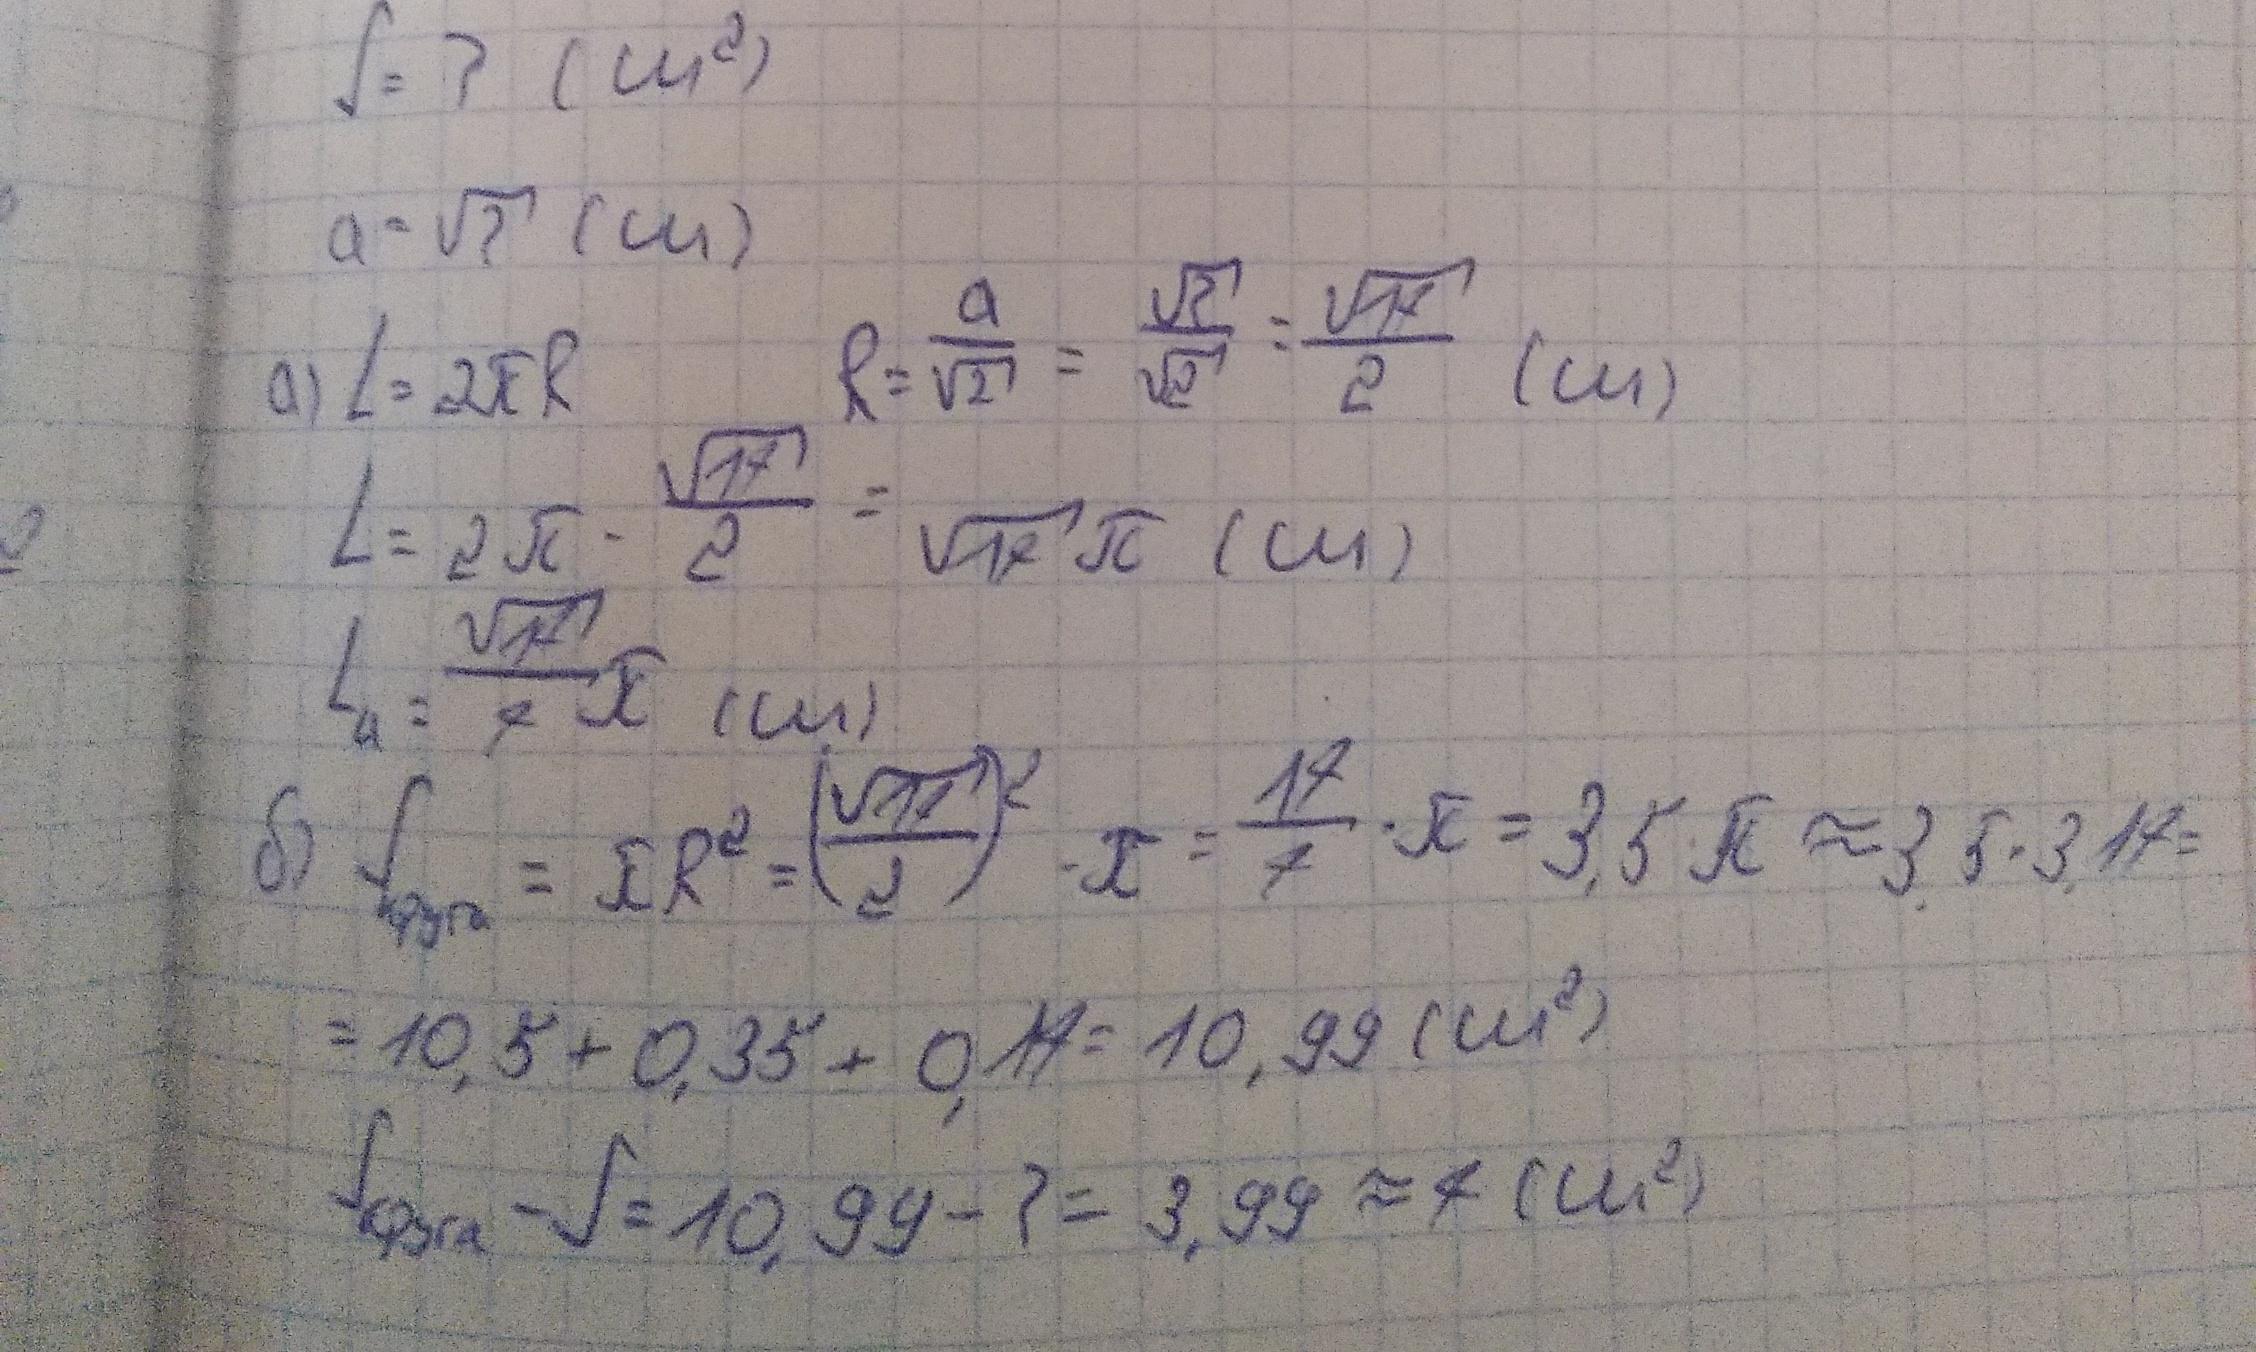 S = 7 (см²)
a = √7 (см)
а) L = 2πR R = a/√2 = √7/√2 = √14/2 (см)
L = 2π · √14/2 = √14 π (см)
Lа = √14/4 π (см)
б) Sкруга = πR² = (√14/2)² · π = 14/4 · π = 3,5 π ≈ 3,5 · 3,14 =
= 10,5 + 0,35 + 0,14 = 10,99 (см²)
Sкруга − S = 10,99 − 7 = 3,99 ≈ 4 (см²)